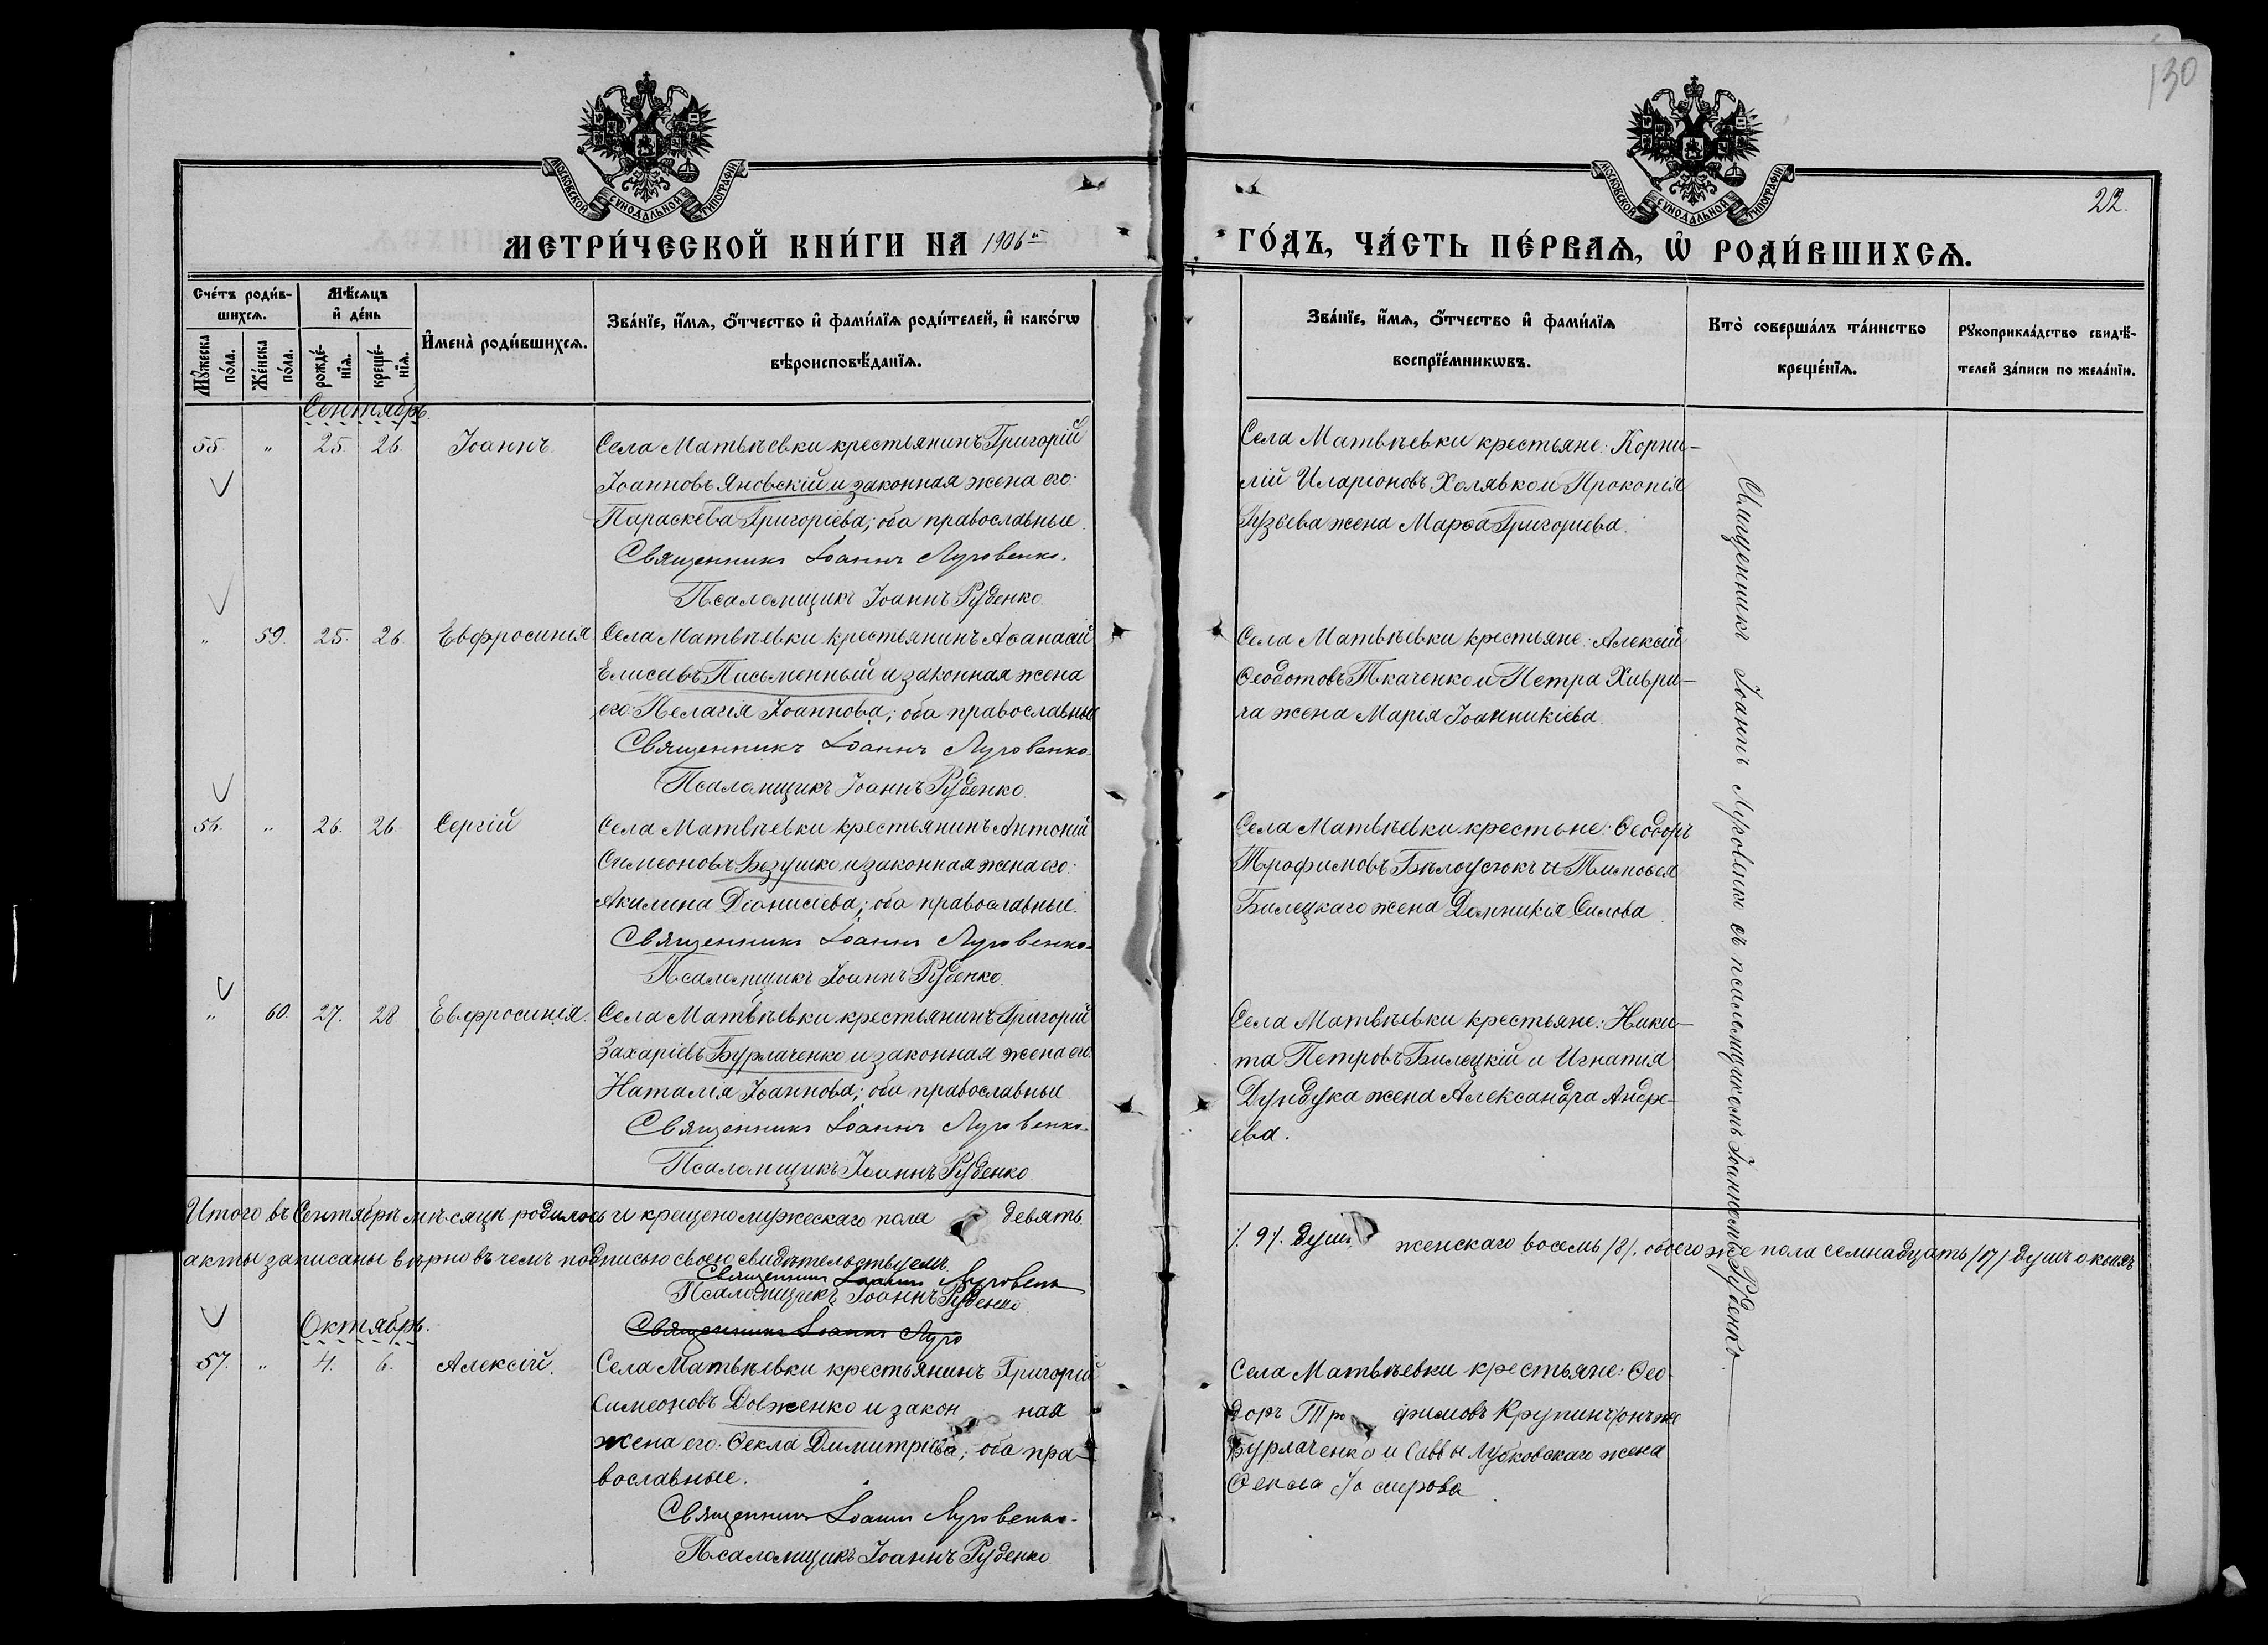 130
МОСКОВСКОЙ СѴНОДАЛЬНОЙ ТИПОГРАФІИ
МОСКОВСКОЙ СѴНОДАЛЬНОЙ ТИПОГРАФІИ
22.
МЕТРИ́ЧЕСКОЙ КНИ́ГИ НА 1906й
ГО́ДЪ, ЧА́СТЬ ПЕ́РВАѦ, Ѡ҆ РОДИ́ВШИХСѦ.
Сче́тъ роди́в-
шихсѧ.
Мꙋ́жеска по́ла.
Же́нска по́ла.
Мѣ́сѧцъ
и҆ де́нь
рожде́-
нїѧ.
креще́-
нїѧ.
И҆мена̀ роди́вшихсѧ.
Зва́нїе, и҆́мѧ, ѻ҆́тчество и҆ фами́лїѧ роди́телей, и҆ како́гѡ
вѣроисповѣ́данїѧ.
Зва́нїе, и҆́мѧ, ѻ҆́тчество и҆ фами́лїѧ
воспрїе́мникѡвъ.
Кто̀ соверша́лъ та́инство
креще́нїѧ.
Рꙋкоприкла́дство свидѣ́-
телей за́писи по жела́нїю.
Сентябрь.
55. " 25. 26. Іоаннъ.
Села Матвѣевки крестьянинъ Григорій
Іоанновъ Яновскій и законная жена его:
Параскева Григоріева; оба православные.
Священникъ Іоаннъ Луговенко.
Псаломщикъ Іоаннъ Руденко.
Села Матвѣевки крестьяне: Корни-
лій Иларіоновъ Холявко и Прокопія
Гузьева жена Марѳа Григоріева.
" 59. 25. 26. Евфросинія.
Села Матвѣевки крестьянинъ Аѳанасій
Елисеевъ Письменный и законная жена
его: Пелагія Іоаннова; оба православные
Священникъ Іоаннъ Луговенко.
Псаломщикъ Іоаннъ Руденко.
Села Матвѣевки крестьяне: Алексій
Ѳеодотовъ Ткаченко и Петра Хиври-
ча жена Марія Іоанникіева.
56. " 26. 26. Сергій
Села Матвѣевки крестьянинъ Антоній
Симеоновъ Безушко и законная жена его:
Акилина Діонисіева; оба православные.
Священникъ Іоаннъ Луговенко.
Псаломщикъ Іоаннъ Руденко.
Села Матвѣевки крестьяне: Ѳеодоръ
Трофимовъ Бѣлоусюкъ и Тимоѳея
Билецкаго жена Домникія Силова.
" 60. 27. 28 Евфросинія.
Села Матвѣевки крестьянинъ Григорій
Захаріевъ Бурлаченко и законная жена его:
Наталія Іоаннова; оба православные
Священникъ Іоаннъ Луговенко.
Псаломщикъ Іоаннъ Руденко
Села Матвѣевки крестьяне: Ники-
та Петровъ Билецкій и Игнатія
Дундука жена Александра Андре-
ева.
Священникъ Іоаннъ Луговенко съ псаломщикомъ Іоанномъ Руденко
Итого въ Сентябрѣ мѣсяцѣ родилось и крещено мужескаго пола девять
/9/. душъ, женскаго восемь /8/. обоего же пола семнадцать /17/ душъ о коихъ
акты записаны вѣрно въ чемъ подписью своею свидѣтельствуемъ.
Священникъ Іоаннъ Луговенко
Псаломщикъ Іоаннъ Руденко
Октябрь.
Священникъ Іоаннъ Луго
57. " 4. 6. Алексій.
Села Матвѣевки крестьянинъ Григорій
Симеоновъ Довженко и законная
жена его: Ѳекла Димитріева; оба пра-
вославные.
Священникъ Іоаннъ Луговенко.
Псаломщикъ Іоаннъ Руденко
Села Матвѣевки крестьяне: Ѳео-
доръ Трофимовъ Крупинъ/онъ же
Бурлаченко и Саввы Лубковскаго жена
Ѳекла